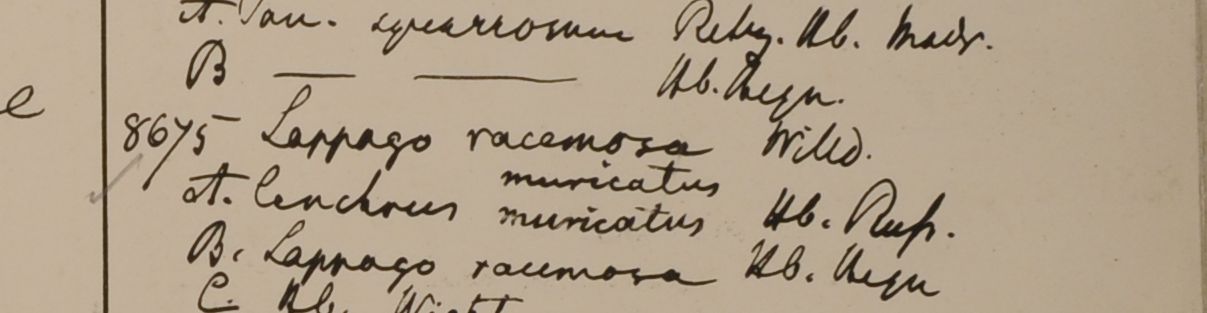 A. Pan. squarrosum Retz. Hb. Madr.
B — — Hb. Heyn.
e
8675 Lappago racemosa Willd.
muricatus
A. Cenchrus muricatus Hb. Rusf.
B. Lappago racemosa Hb. Heyn
C. Hb. Wight